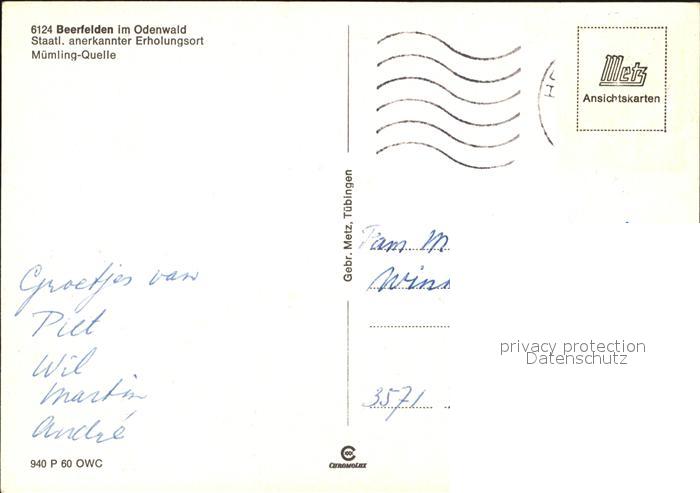 6124 Beerfelden im Odenwald
Staatl. anerkannter Erholungsort
Mümling-Quelle
Metz
Ansichtskarten
Gebr. Metz, Tübingen
Groetjes van
Piet
Wil
Martin
André
Fam M
3571
privacy protection
Datenschutz
940 P 60 OWC
CHROMOLUX